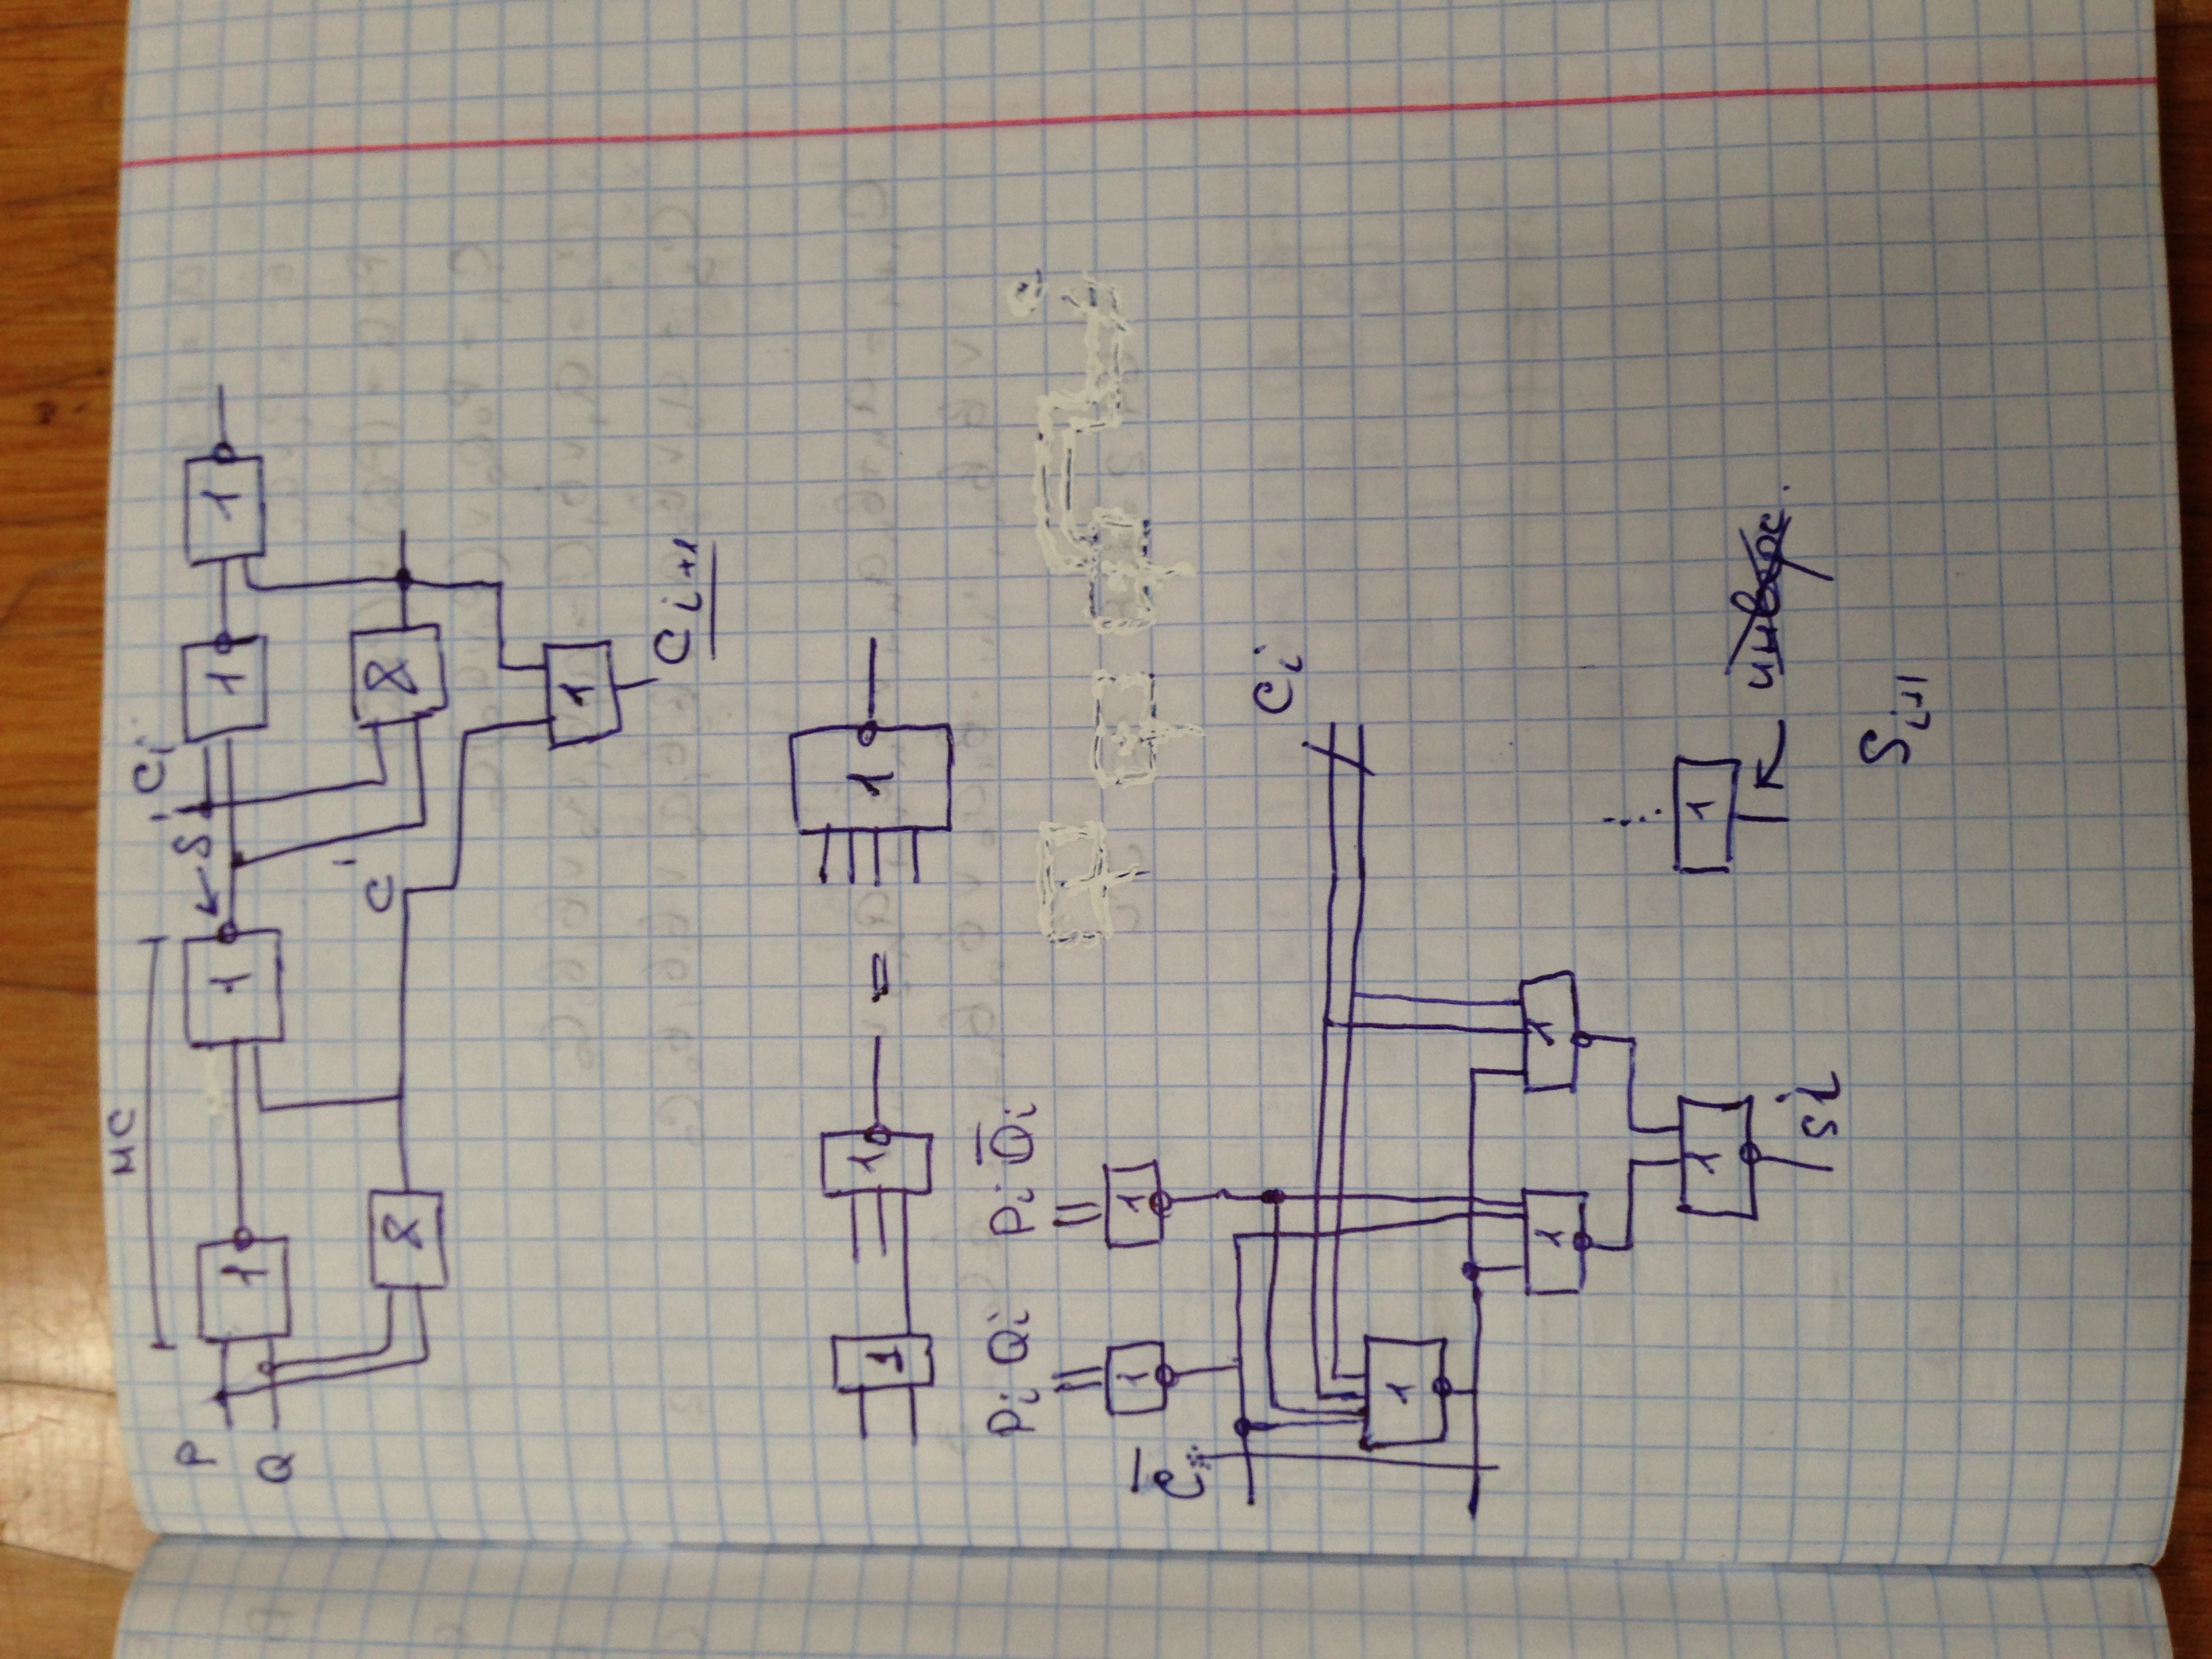 МС
P
Q
1
1
S'
Ci
1
1
&
C'
&
1
Ci+1
1
1
=
1
Pi Qi
Pi Q̅i
1
1
C̅
Ci
1
1
1
1
Si
⋮
1
инверс.
Si+1